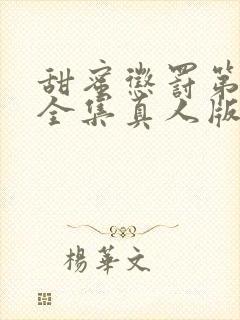 甜蜜懲罰第
全集真人版
楊華文